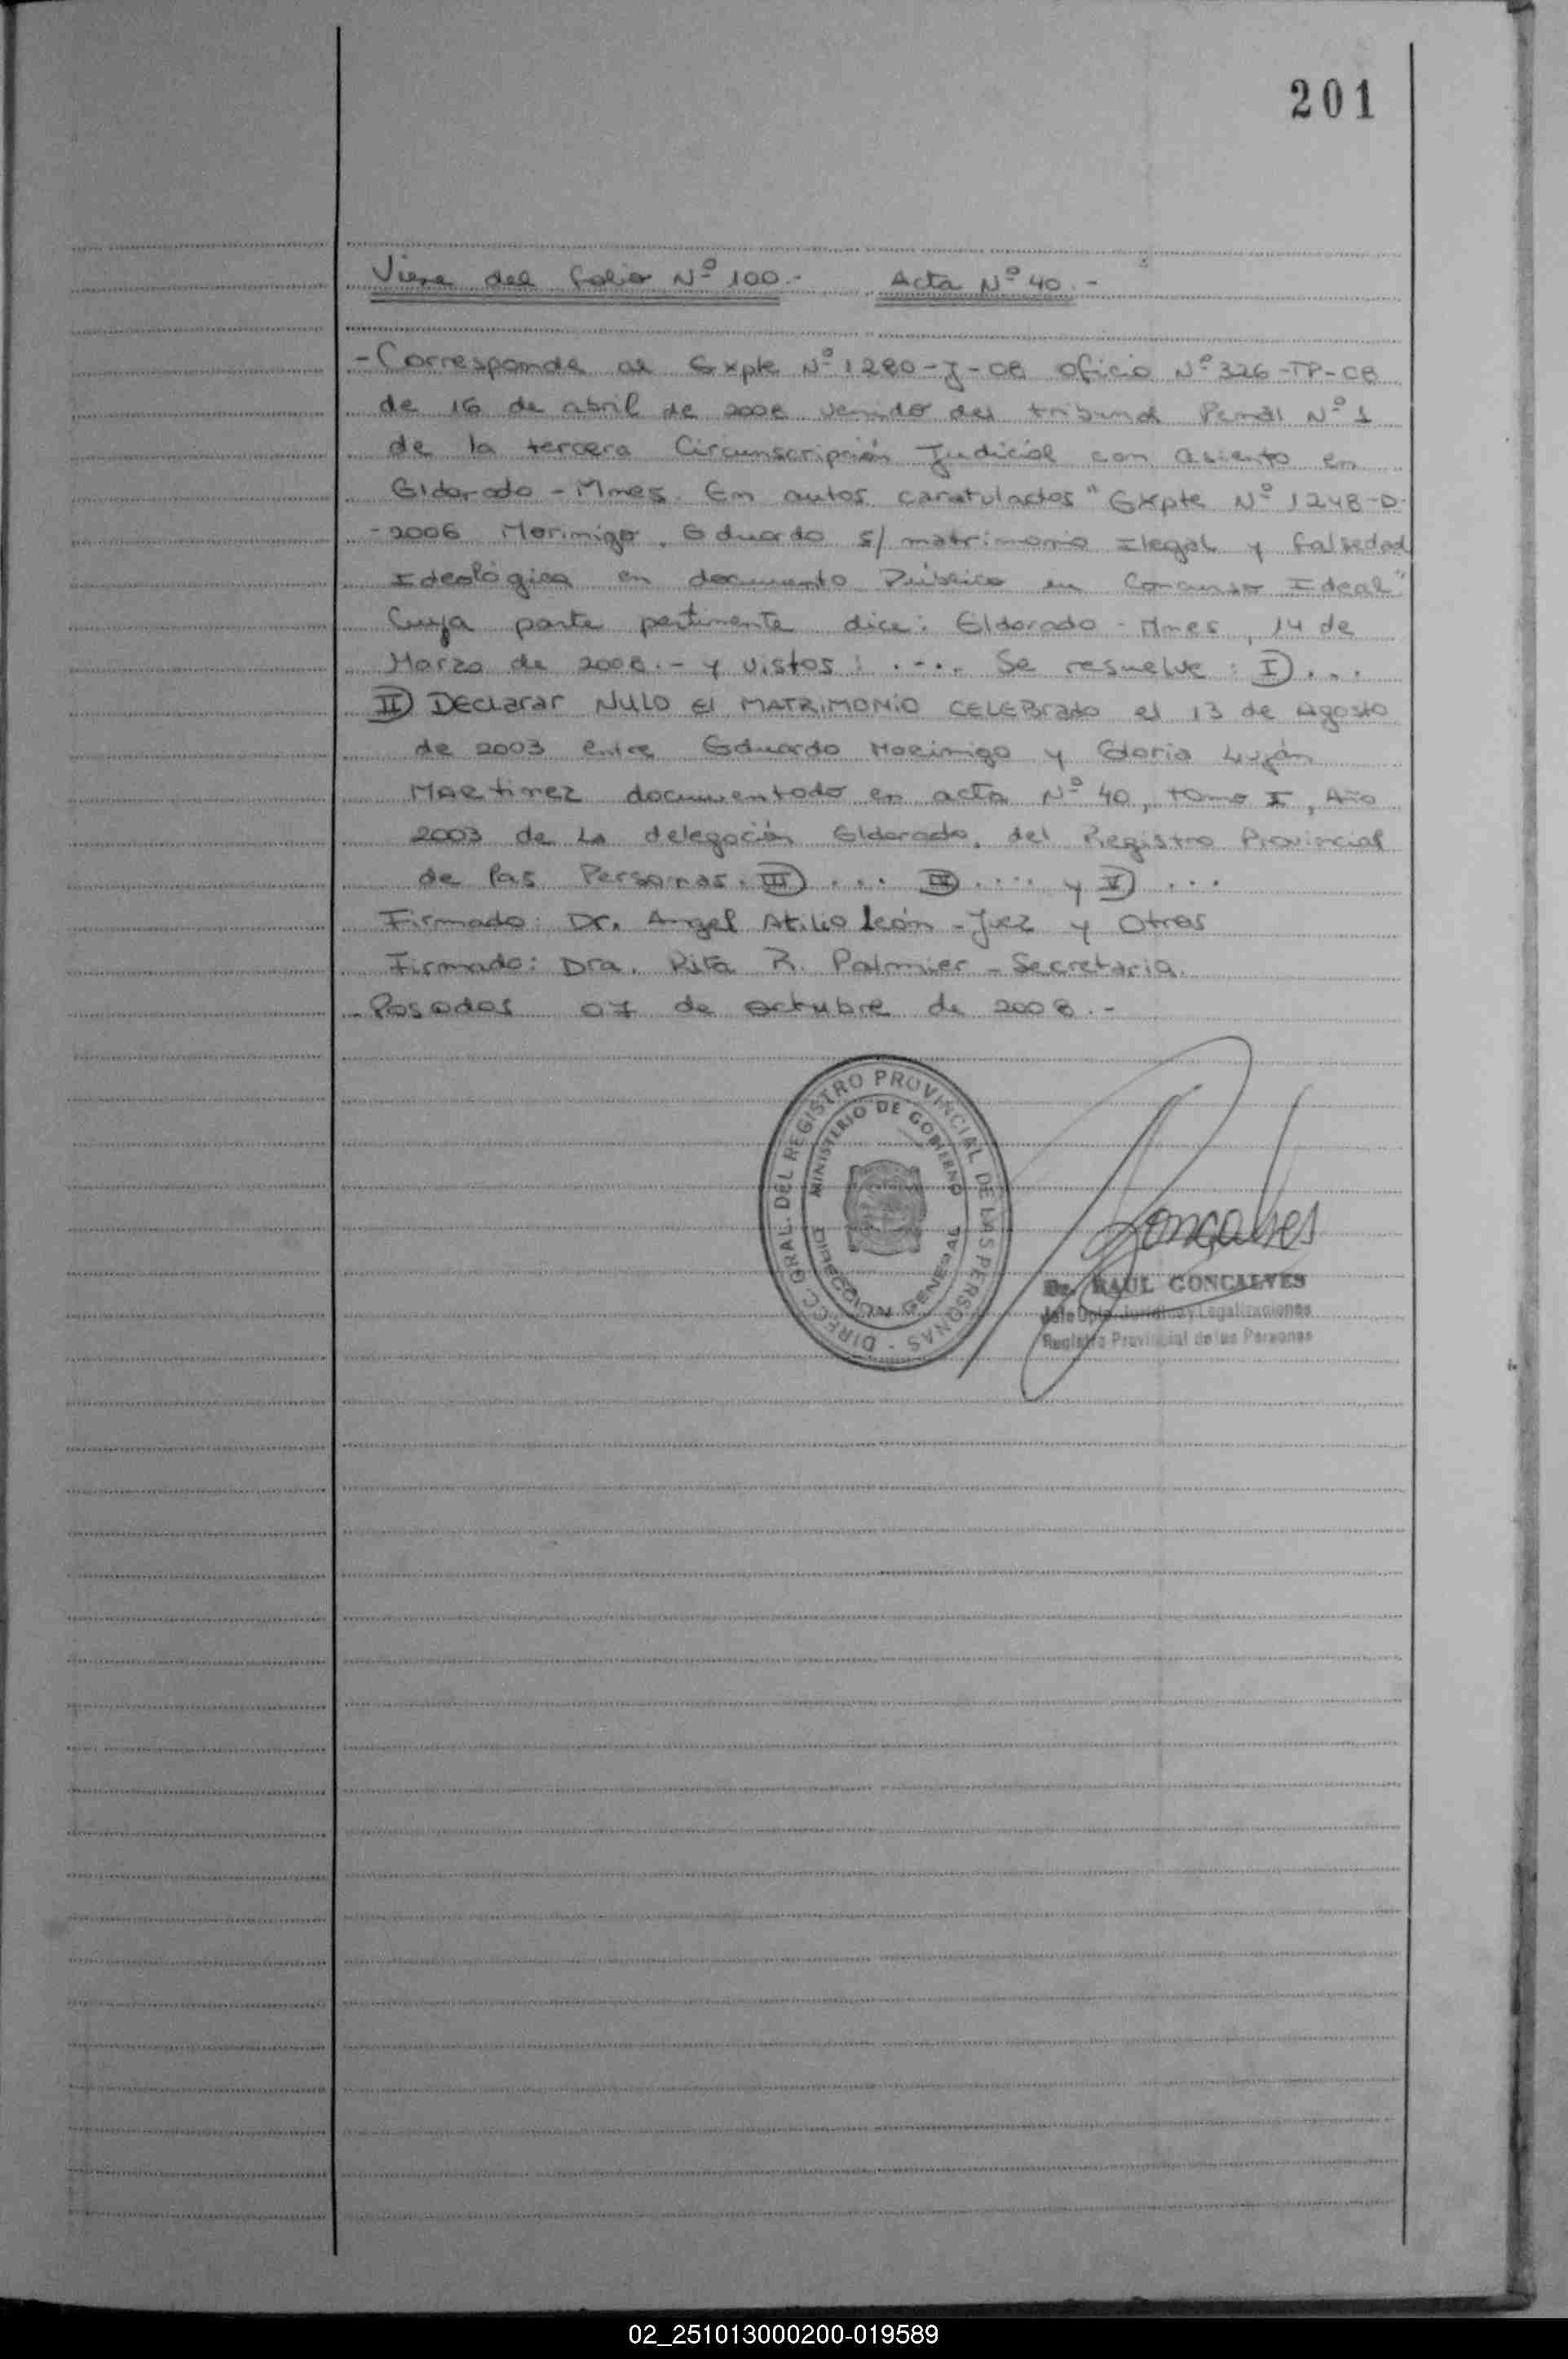 201
Viene del folio Nº 100.- Acta Nº 40.-
-Corresponde al Expte Nº 1280-J-08 Oficio Nº 326-TP-08
de 16 de abril de 2008 venido del tribunal Penal Nº 1
de la tercera Circunscripción Judicial con asiento en
Eldorado - Mnes. En autos caratulados "Expte Nº 1248-D-
-2006 Morinigo, Eduardo s/ matrimonio Ilegal y falsedad
Ideológica en documento Público en Concurso Ideal"
Cuya parte pertinente dice: Eldorado - Mnes, 14 de
Marzo de 2008.- y vistos: .-.. Se resuelve: I) ...
II) Declarar NULO El MATRIMONIO CELEBrado el 13 de Agosto
de 2003 entre Eduardo Morinigo y Gloria Luján
Martinez documentado en acta Nº 40, tomo I, Año
2003 de La delegación Eldorado, del Registro Provincial
de las Personas. III) ... IV) .... y V) ...
Firmado: Dr. Angel Atilio León - Juez y Otros
Firmado: Dra. Rita R. Palmier - Secretaria.
-Posadas 07 de octubre de 2008.-
DIRECC. GRAL. DEL REGISTRO PROVINCIAL DE LAS PERSONAS -
MINISTERIO DE GOBIERNO
DIRECCION GENERAL
Goncalves
Dr. RAUL GONCALVES
Jefe Dpto. Jurídico y Legalizaciones
Registro Provincial de las Personas
02_251013000200-019589